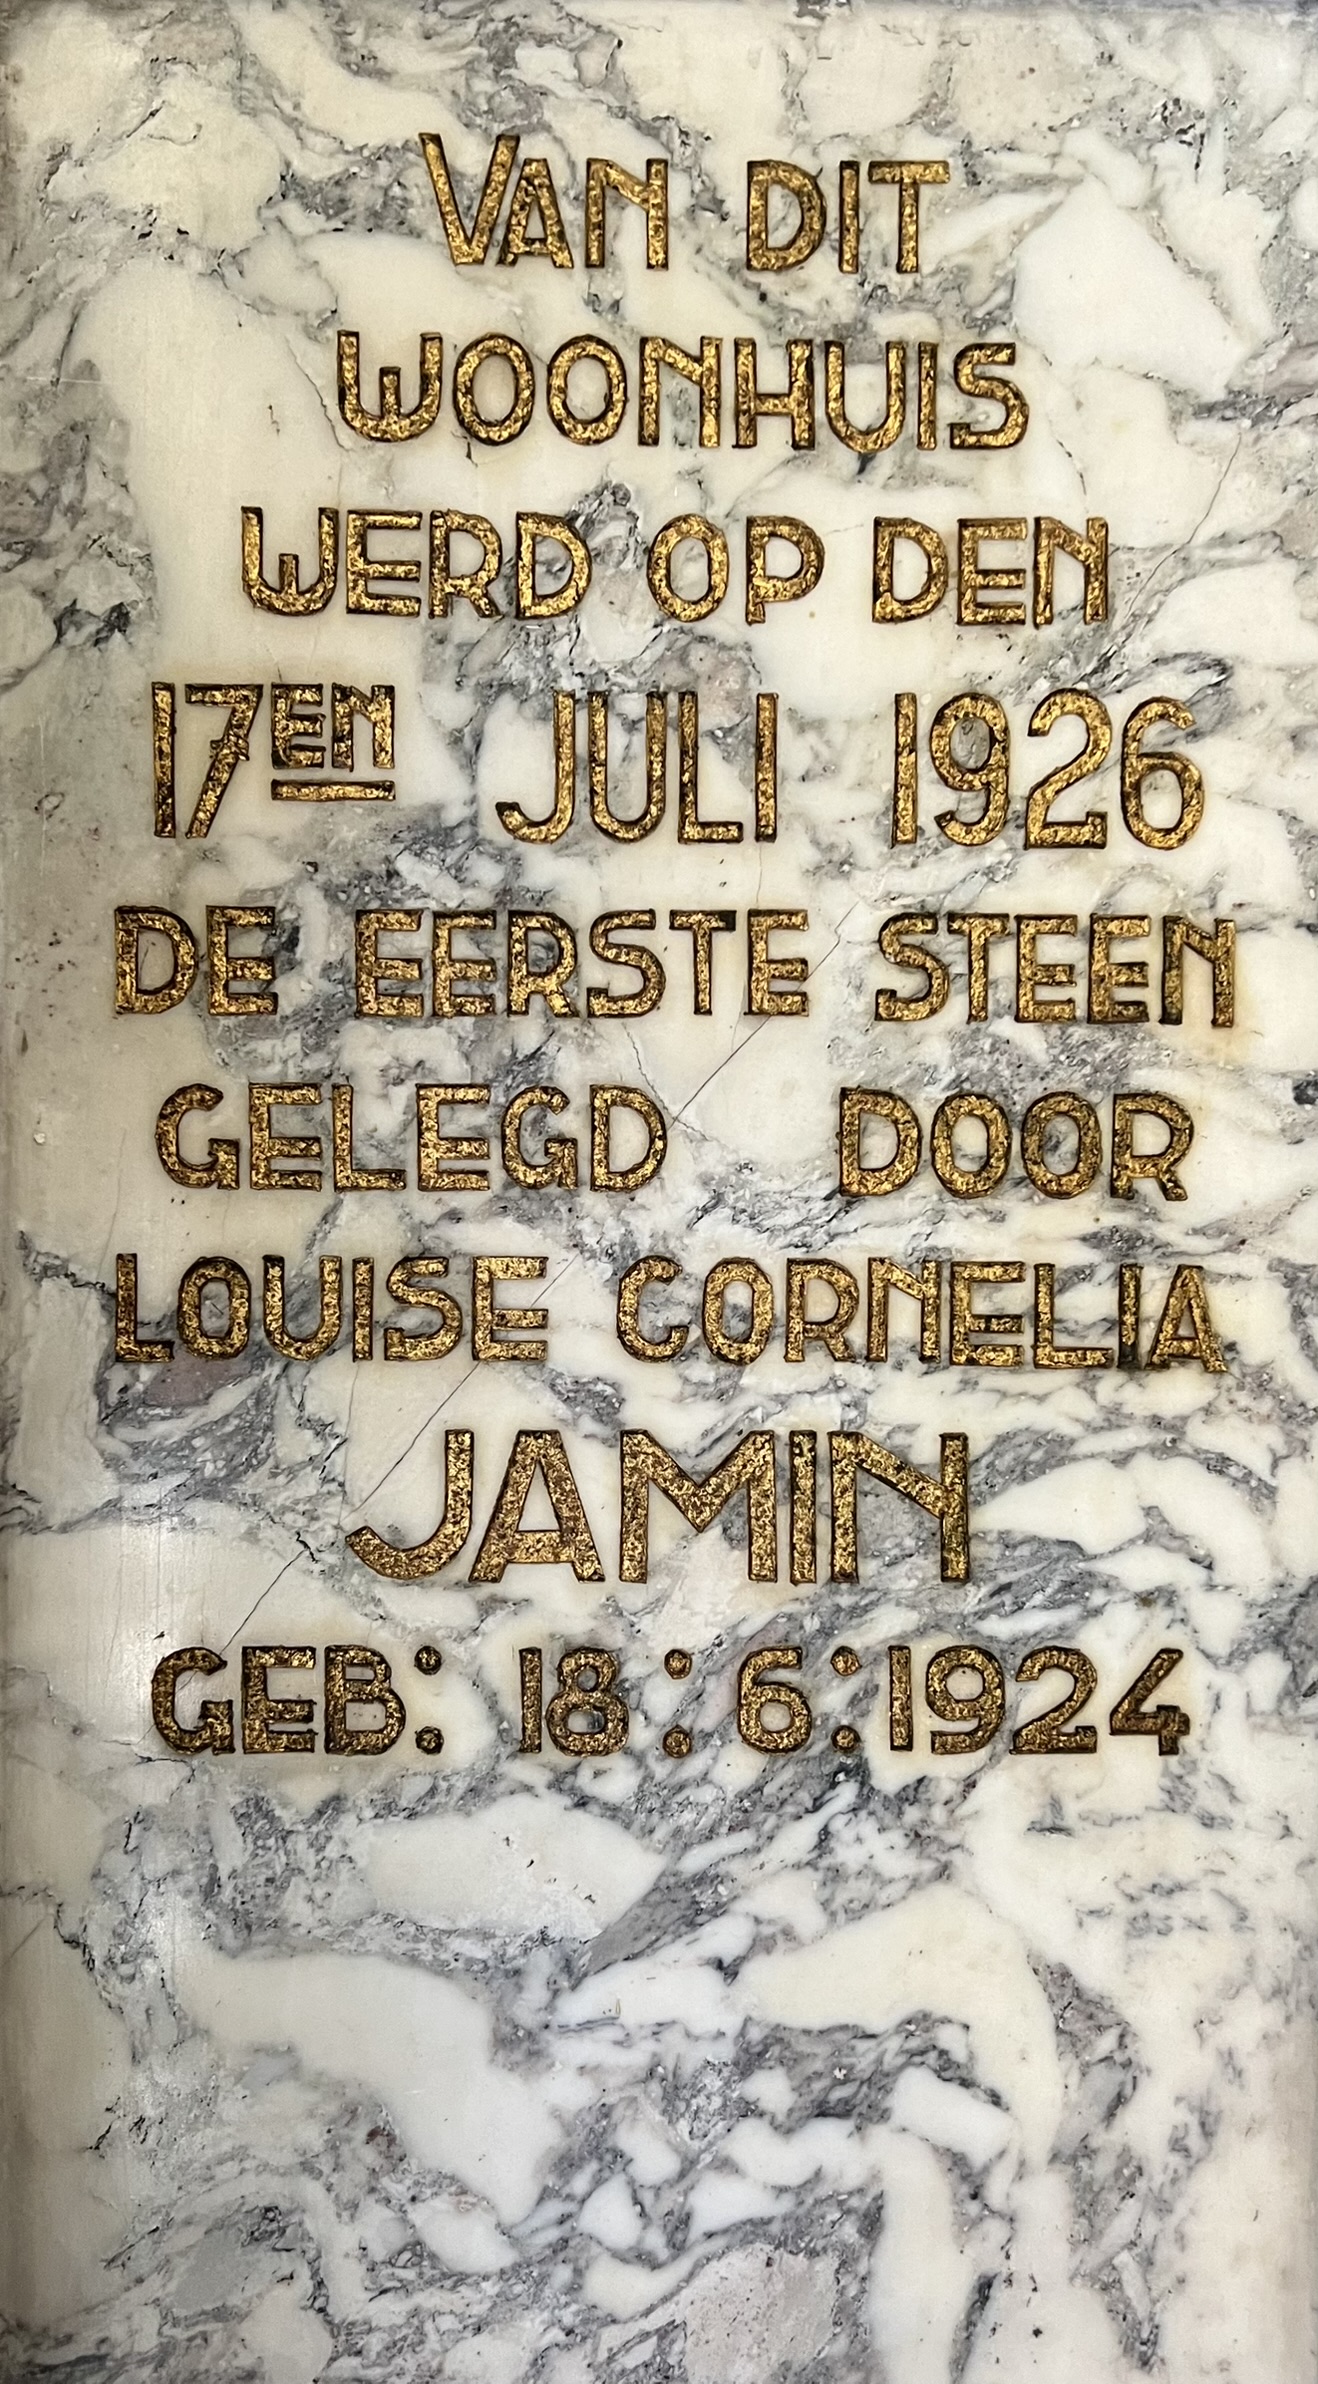 VAN DIT
WOONHUIS
WERD OP DEN
17EN JULI 1926
DE EERSTE STEEN
GELEGD DOOR
LOUISE CORNELIA
JAMIN
GEB: 18:6:1924